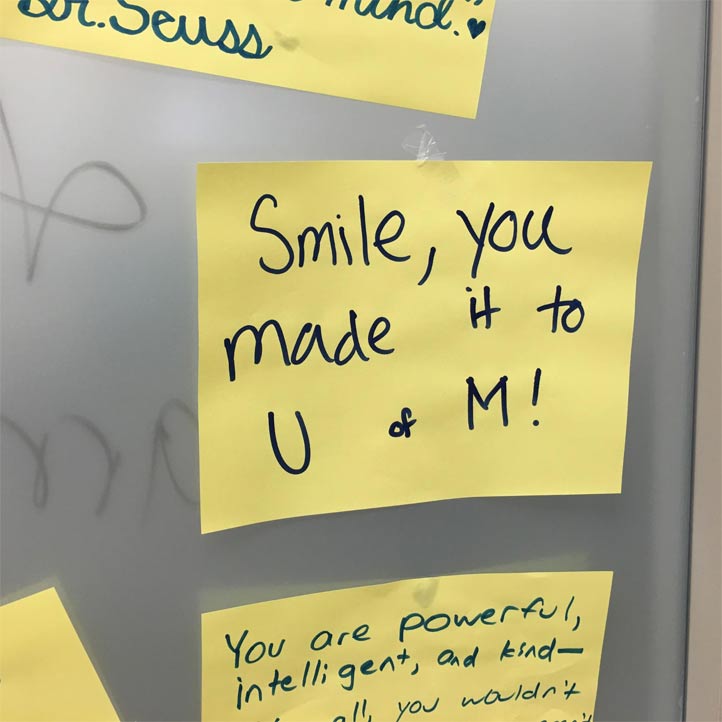 mind."
Dr. Seuss
Smile, you
made it to
U of M!
You are powerful,
intelligent, and kind—
all, you wouldn't